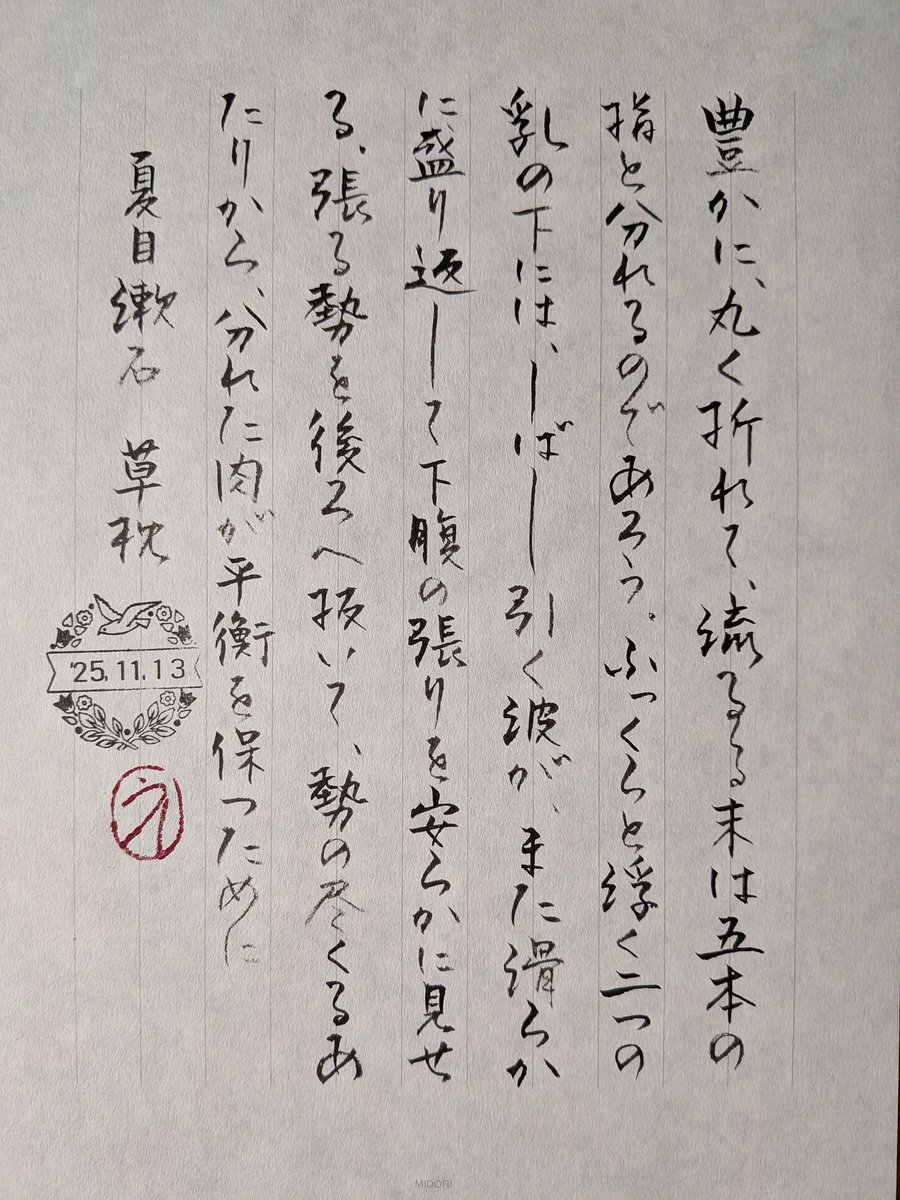 豊かに、丸く折れて、流るる末は五本の
指と分れるのであろう。ふっくらと浮く二つの
乳の下には、しばし引く波が、また滑らか
に盛り返して下腹の張りを安らかに見せ
る、張る勢を後ろへ抜いて、勢の尽くるあ
たりから、分れた肉が平衡を保つために
夏目漱石 草枕
'25.11.13
MIDORI